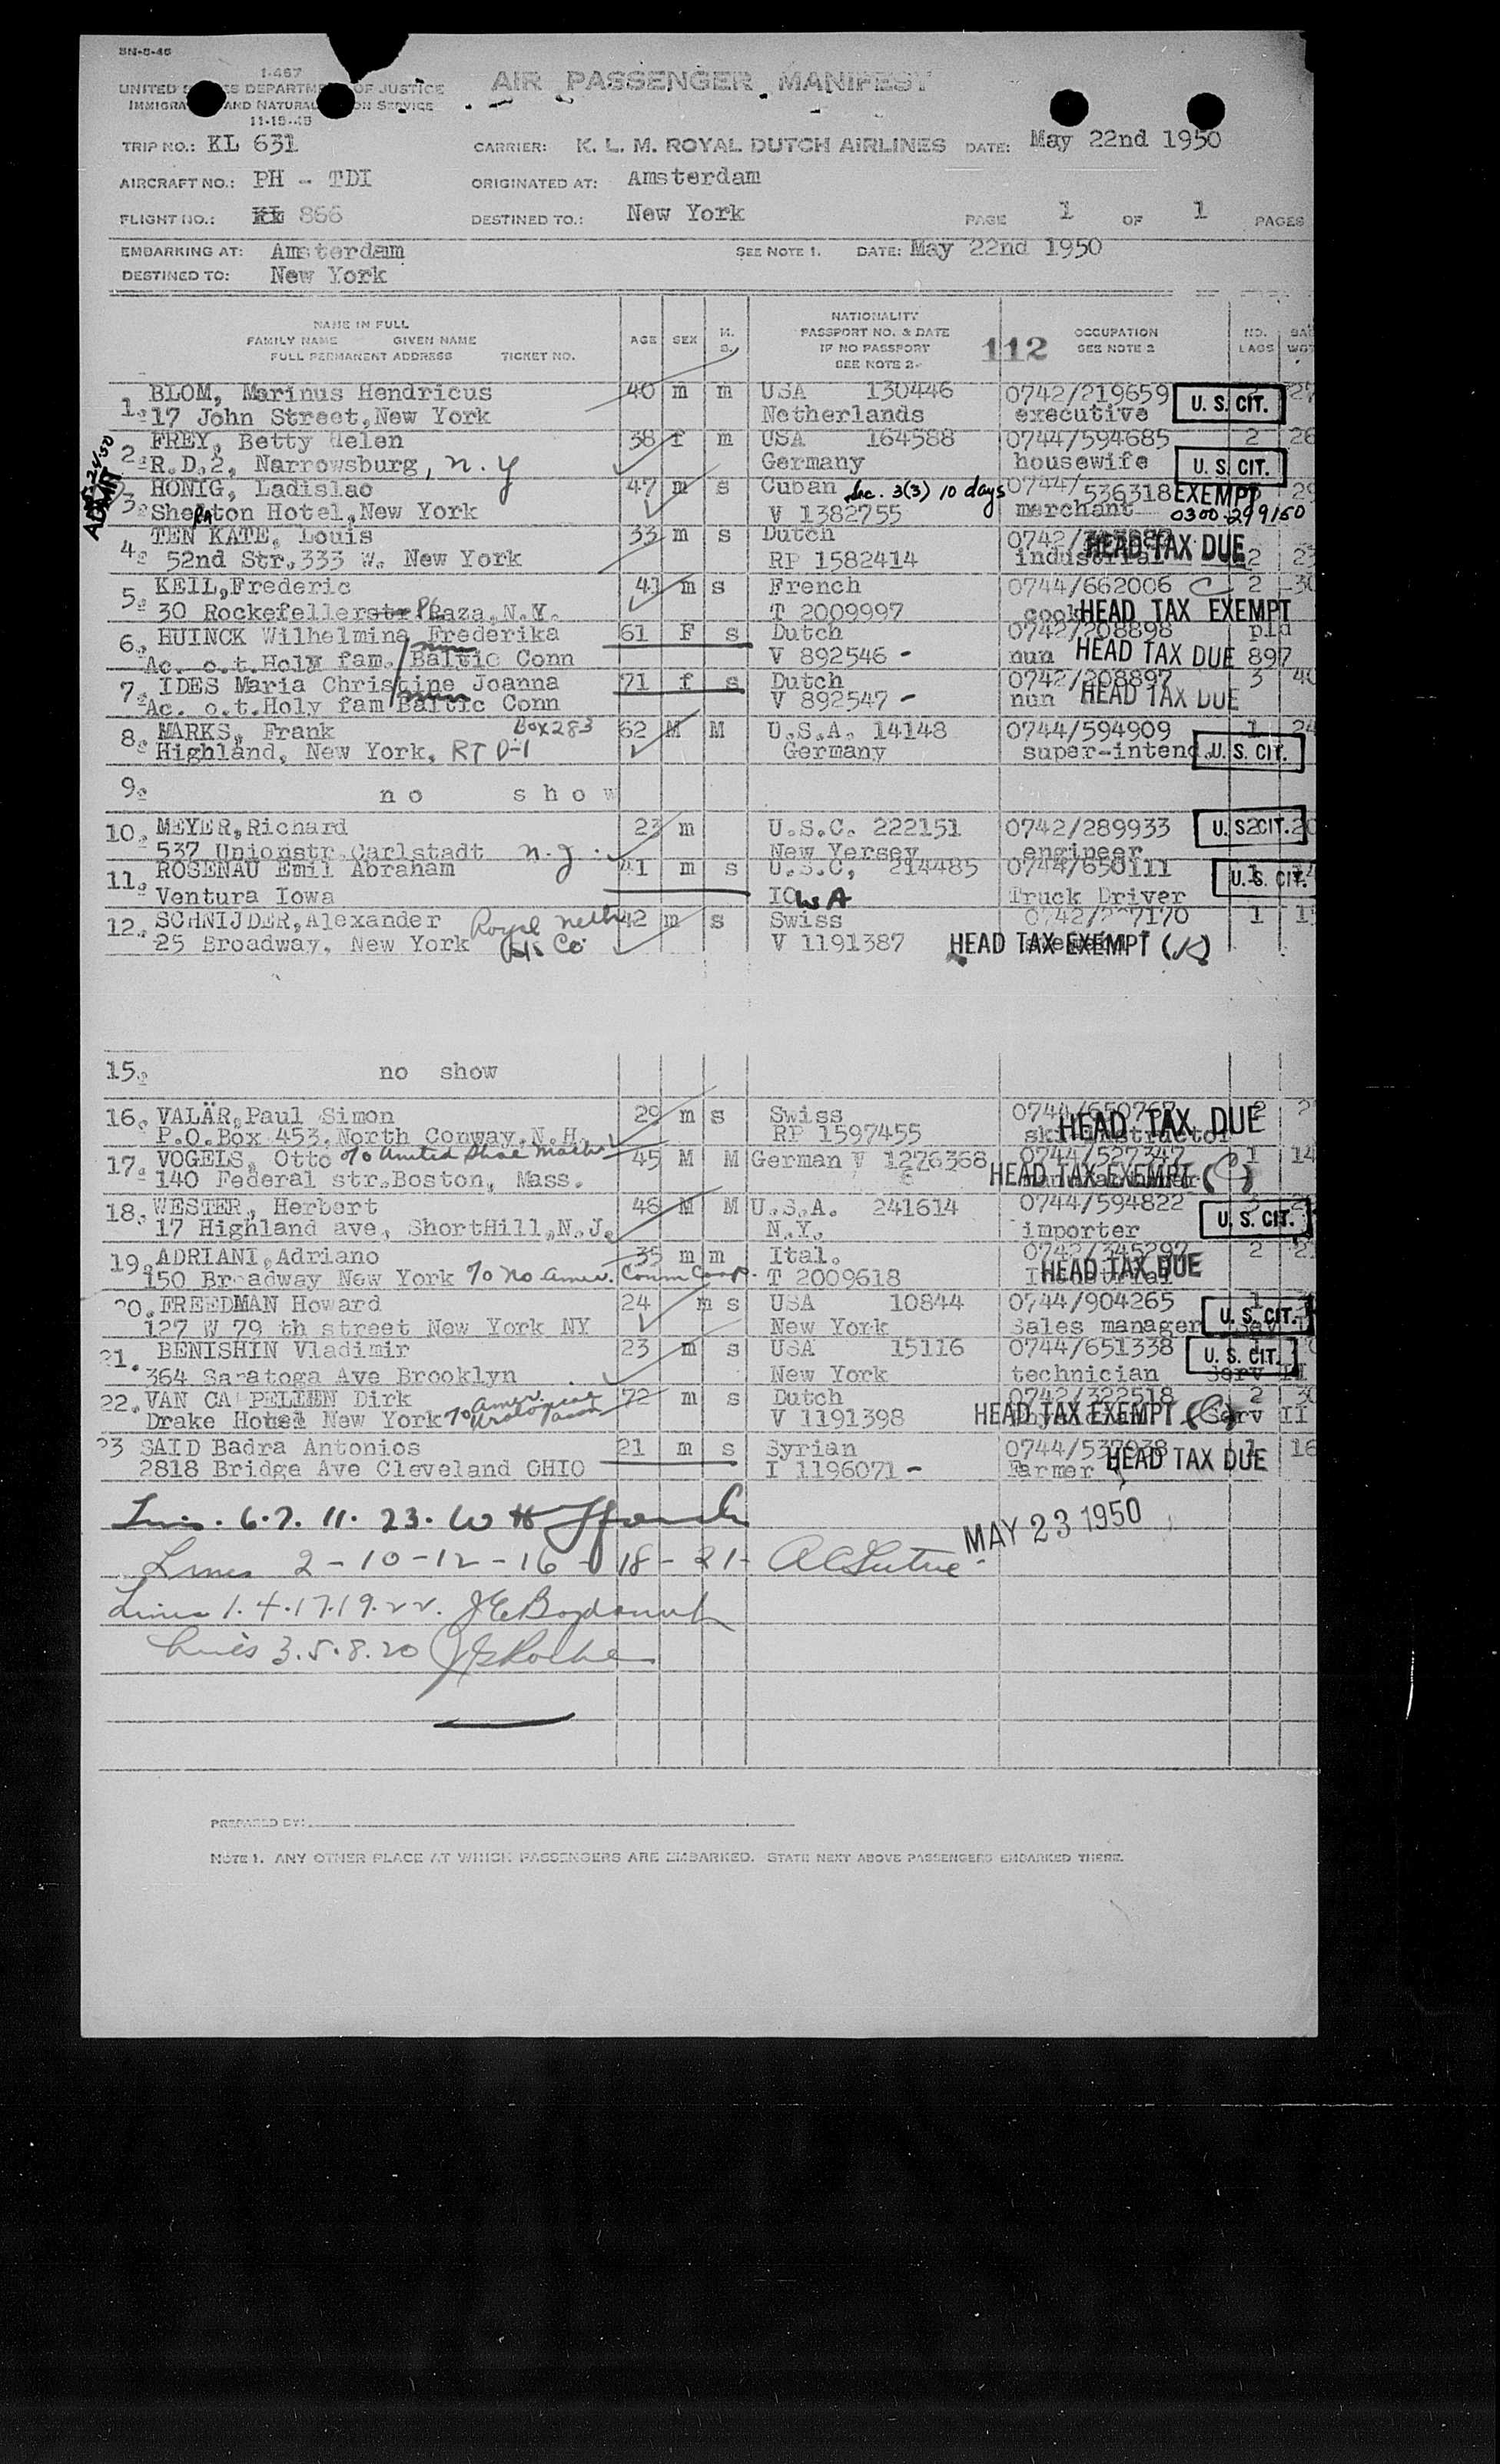 SN-5-46
I-467
UNITED STATES DEPARTMENT OF JUSTICE
IMMIGRATION AND NATURALIZATION SERVICE
11-15-45
AIR PASSENGER MANIFEST
TRIP NO.: KL 631 CARRIER: K. L. M. ROYAL DUTCH AIRLINES DATE: May 22nd 1950
AIRCRAFT NO.: PH - TDI ORIGINATED AT: Amsterdam
FLIGHT NO.: KL 866 DESTINED TO.: New York PAGE 1 OF 1 PAGES
EMBARKING AT: Amsterdam SEE NOTE 1. DATE: May 22nd 1950
DESTINED TO: New York
NAME IN FULL
FAMILY NAME GIVEN NAME
FULL PERMANENT ADDRESS TICKET NO.
AGE SEX M. S.
NATIONALITY
PASSPORT NO. & DATE
IF NO PASSPORT
SEE NOTE 2-
112 OCCUPATION
SEE NOTE 2
1. BLOM, Marinus Hendricus 40 m m USA 130446 0742/219659 U. S. CIT. 27
17 John Street, New York Netherlands executive
2. FREY, Betty Helen 38 f m USA 164588 0744/594685 2 26
R.D.2, Narrowsburg, N.Y Germany housewife U. S. CIT.
3. HONIG, Ladislao 47 m s Cuban Sec. 3(3) 10 days 0744/536318 EXEMPT 29
Sheraton Hotel, New York V 1382755 merchant 0300-299150
ADMIT
4. TEN KATE, Louis 33 m s Dutch 0742/ HEAD TAX DUE
52nd Str. 333 W. New York RP 1582414 industrial 2
5. KEIL, Frederic 41 m s French 0744/662006 C 2 30
30 Rockefeller str Plaza, N.Y. T 2009997 cook HEAD TAX EXEMPT
6. HUINCK Wilhelmina Frederika 61 F s Dutch 0742/208898 pld
Ac. o.t. Holy fam. Baltic Conn V 892546 - nun HEAD TAX DUE 897
7. IDES Maria Christine Joanna 71 f s Dutch 0742/208897 3 40
Ac. o.t. Holy fam Baltic Conn V 892547 - nun HEAD TAX DUE
8. MARKS, Frank Box 283 62 M M U.S.A. 14148 0744/594909 1 24
Highland, New York, RT D-1 Germany super-intend. U. S. CIT.
9. no show
10. MEYER, Richard 23 m U.S.C. 222151 0742/289933 U. S. CIT. 2 20
537 Unionstr. Carlstadt N.J. New Yersey engineer
11. ROSENAU Emil Abraham 41 m s U.S.C, 214485 0744/650111 1 14
Ventura Iowa IOWA Truck Driver U. S. CIT.
12. SCHNIJDER, Alexander Royal Neth 42 m s Swiss 1
25 Broadway, New York SS. Co. V 1191387 HEAD TAX EXEMPT
15. no show
16. VALÄR, Paul Simon 29 m s Swiss 0744/650767 2
P.O. Box 453, North Conway, N.H. RP 1597455 ski instructor HEAD TAX DUE
17. VOGELS, Otto c/o United Shoe Mach. 45 M M German V 1276368 0744/527347 1 14
140 Federal str. Boston, Mass. HEAD TAX EXEMPT (C)
18. WESTER, Herbert 46 M M U.S.A. 241614 0744/594822
17 Highland ave, ShortHill, N.J. N.Y. importer U. S. CIT.
19. ADRIANI, Adriano 35 m m Ital. 0742/345297 2
150 Broadway New York c/o No Amer. Comm Corp. T 2009618 HEAD TAX DUE
20. FREEDMAN Howard 24 m s USA 10844 0744/904265
127 W 79 th street New York NY New York Sales manager U. S. CIT.
21. BENISHIN Vladimir 23 m s USA 15116 0744/651338
364 Saratoga Ave Brooklyn New York technician U. S. CIT. Serv II
22. VAN CAPELLEN Dirk 72 m s Dutch 0742/322518 2 30
Drake Hotel New York c/o Amer Urological Assn V 1191398 HEAD TAX EXEMPT (C) Serv II
23 SAID Badra Antonios 21 m s Syrian 0744/537938 1 16
2818 Bridge Ave Cleveland OHIO I 1196071 - Farmer HEAD TAX DUE
Lines. 6. 7. 11. 23.
MAY 23 1950
Lines 2 - 10 - 12 - 16 - 18 - 21 -
Lines 1. 4. 17. 19. 22.
Lines 3. 5. 8. 20
PREPARED BY:
NOTE 1. ANY OTHER PLACE AT WHICH PASSENGERS ARE EMBARKED. STATE NEXT ABOVE PASSENGERS EMBARKED THERE.